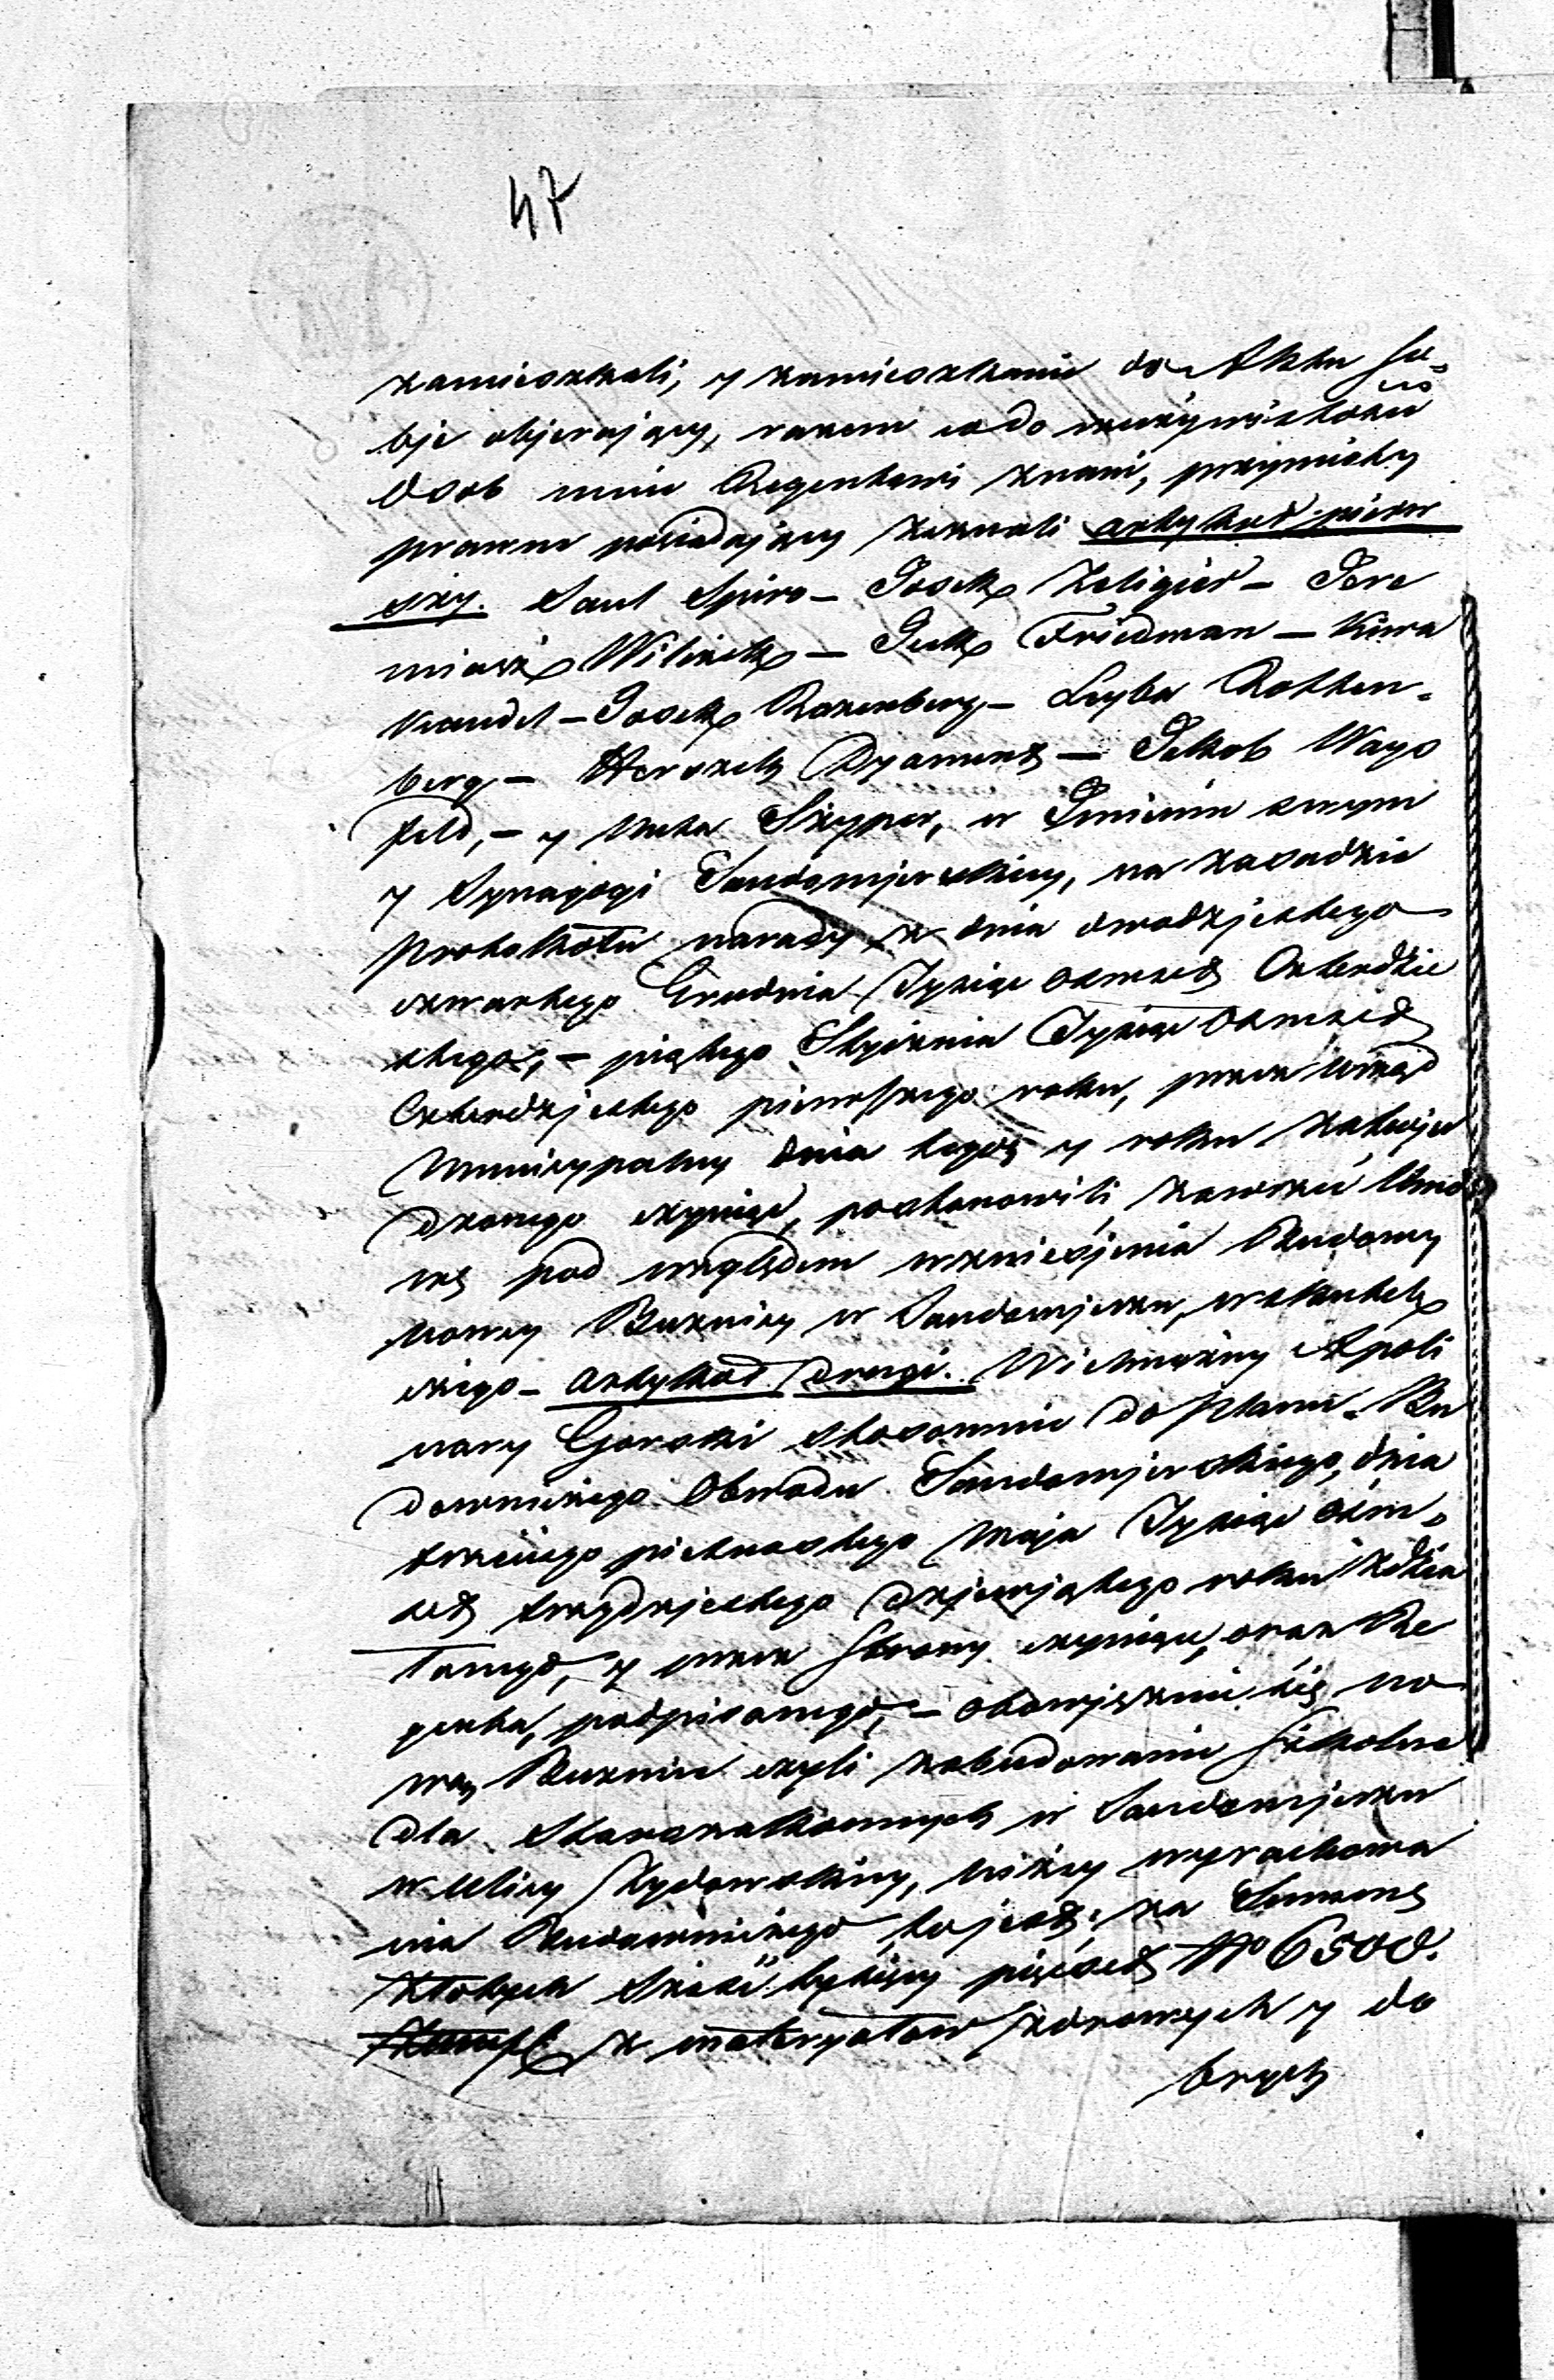 47
zamieszkali, y zamieszkanie do Aktu so-
bje objerający, razem co do rzeczywistości
Osob mnie Regentowi znani, przymioty
prawne posiadający zeznali artykuł pierw
szy. Saul Spiro – Josek Zeligier – Jere
miasz Wilczek – Icek Friedman – Kiwa
Kandel – Josek Rozenberg – Leyba Rotten-
berg – Herszek Dyament – Jakob Ways
feld, – y Szyper, w Imieniu swym
y Synagogi Sandomjerskiey, na zasadzie
Protokółu narady z dnia dwudzjestego
czwartego Grudnia Tysiąc osmset Czterdzie
stego, – piątego Stycznia Tysiąc osmset
Czterdzjestego pierwszego roku, przez Urząd
Municypalny dnia tegoż y roku zatwjer
dzonego czyniąc, postanowili zawrzeć Umo
wę pod względem wzniesjenia Budowy
nowey Buznicy w Sandomjerzu, w skutek
czego – artykuł drugi. Wielmożny Apoli
nary Gorski stosownie do planu Bu
downiczego Obwodu Sandomjerskiego, dnia
trzeciego pietnastego Maja Tysiąc ośm-
set trzydzjestego dzjewjątego roku zdzia
łanego, y przez Strony czyniące, oraz Re
genta, podpisanego, – obowjązuie się no
wą Buznice czyli zabudowanie Szkolne
dla Starozakonnych w Sandomjerzu
w Ulicy Żydowskiey, niżey wyrachowa
nia Budowniczego, to jest: za Summę
Złotych Sześć tysięcy pięćset No 6500.
z materyałow zdrowych y do
brych